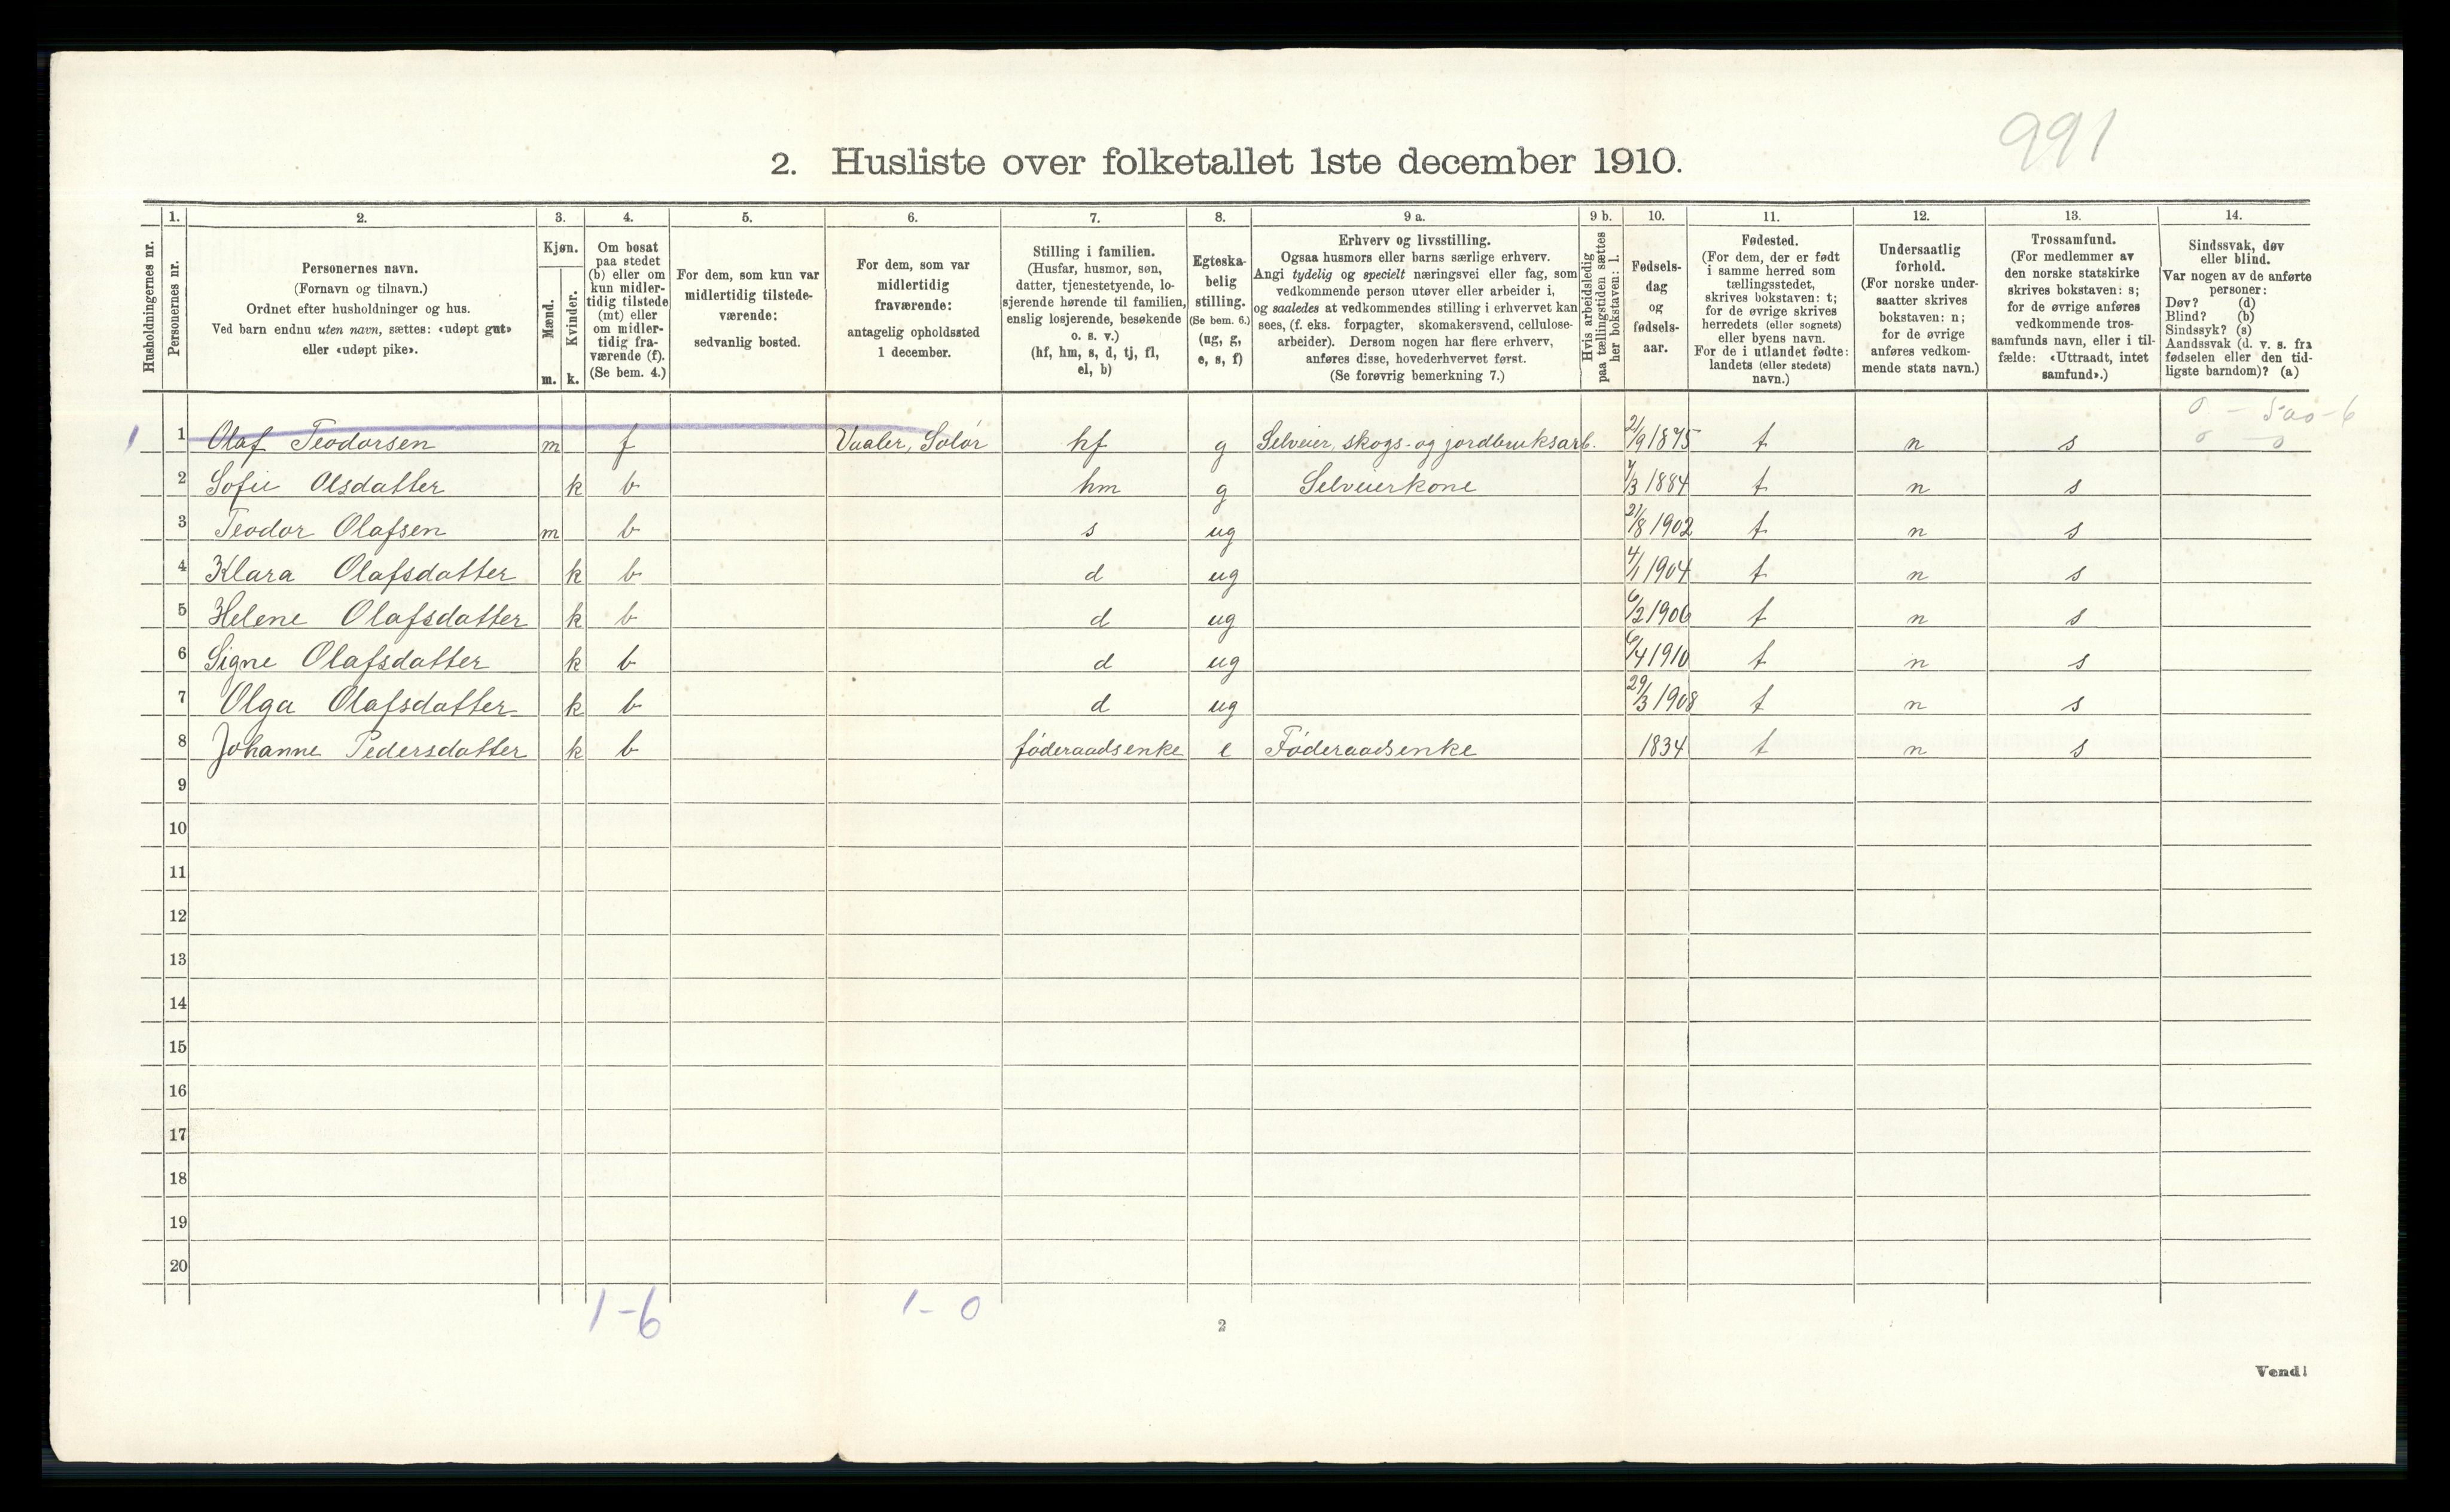 991
2. Husliste over folketallet 1ste december 1910.
Husholdningernes nr.
1.
Personernes nr.
2.
Personernes navn.
(Fornavn og tilnavn.)
Ordnet efter husholdninger og hus.
Ved barn endnu uten navn, sættes: «udøpt gut»
eller «udøpt pike».
3.
Kjøn.
Mænd.
m.
Kvinder.
k.
4.
Om bosat
paa stedet
(b) eller om
kun midler-
tidig tilstede
(mt) eller
om midler-
tidig fra-
værende (f).
(Se bem. 4.)
5.
For dem, som kun var
midlertidig tilstede-
værende:
sedvanlig bosted.
6.
For dem, som var
midlertidig
fraværende:
antagelig opholdssted
1 december.
7.
Stilling i familien.
(Husfar, husmor, søn,
datter, tjenestetyende, lo-
sjerende hørende til familien,
enslig losjerende, besøkende
o. s. v.)
(hf, hm, s, d, tj, fl,
el, b)
8.
Egteska-
belig
stilling.
(Se bem. 6.)
(ug, g,
e, s, f)
9 a.
Erhverv og livsstilling.
Ogsaa husmors eller barns særlige erhverv.
Angi tydelig og specielt næringsvei eller fag, som
vedkommende person utøver eller arbeider i,
og saaledes at vedkommendes stilling i erhvervet kan
sees, (f. eks. forpagter, skomakersvend, cellulose-
arbeider). Dersom nogen har flere erhverv,
anføres disse, hovederhvervet først.
(Se forøvrig bemerkning 7.)
9 b.
Hvis arbeidsledig
paa tællingstiden sættes
her bokstaven: l.
10.
Fødsels-
dag
og
fødsels-
aar.
11.
Fødested.
(For dem, der er født
i samme herred som
tællingsstedet,
skrives bokstaven: t;
for de øvrige skrives
herredets (eller sognets)
eller byens navn.
For de i utlandet fødte:
landets (eller stedets)
navn.)
12.
Undersaatlig
forhold.
(For norske under-
saatter skrives
bokstaven: n;
for de øvrige
anføres vedkom-
mende stats navn.)
13.
Trossamfund.
(For medlemmer av
den norske statskirke
skrives bokstaven: s;
for de øvrige anføres
vedkommende tros-
samfunds navn, eller i til-
fælde: «Uttraadt, intet
samfund».)
14.
Sindssvak, døv
eller blind.
Var nogen av de anførte
personer:
Døv? (d)
Blind? (b)
Sindssyk? (s)
Aandssvak (d. v. s. fra
fødselen eller den tid-
ligste barndom)? (a)
1 1 Olaf Teodorsen m f Vaaler, Solør hf g Selveier, skogs- og jordbruksarb. 21/9 1875 t n s
2 Sofie Olsdatter k b hm g Selveierkone 7/3 1884 t n s
3 Teodor Olafsen m b s ug 21/8 1902 t n s
4 Klara Olafsdatter k b d ug 4/1 1904 t n s
5 Helene Olafsdatter k b d ug 6/2 1906 t n s
6 Signe Olafsdatter k b d ug 6/4 1910 t n s
7 Olga Olafsdatter k b d ug 29/3 1908 t n s
8 Johanne Pedersdatter k b føderaadsenke e Føderaadsenke 1834 t n s
9
10
11
12
13
14
15
16
17
18
19
20
1-6 1-0
2
Vend!